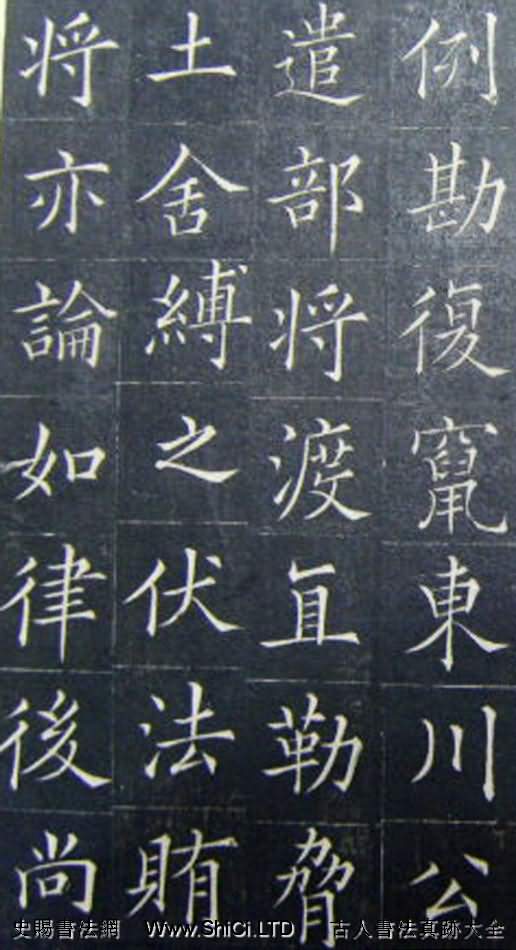 例勘復竄東川公
遣部将渡直勒脅
土舍縛之伏法賄
将亦論如律後尚
史賜書法網 WwW.ShiCi.LTD 古人書法真跡大全